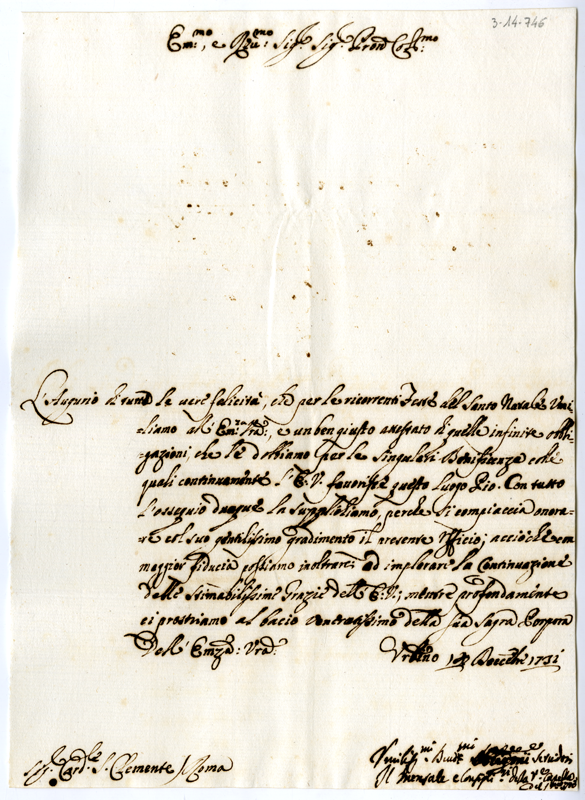 3-14-746
Em:mo, e Rev:mo Sig:r Sig:r Pron Col:mo
L'Augurio di tutte le vere felicità, che per le ricorrenti Feste del Santo Natale Umi-
-liamo all' Em:za Vra:, è un ben giusto attestato di quelle infinite obbli-
-gazioni, che Le dobbiamo per le Singolari Beneficenze colle
quali continuamente l'E.V. favorisce questo Luogo Pio. Con tutto
l'ossequio dunque la supplichiamo, perche si compiaccia onora-
-re col suo gentilissimo gradimento il presente Ufficio; acciòche con
maggior fiducia possiamo inoltrarci ad implorare la Continuazione
delle Stimabilissime Grazie dell'E.V.; mentre profondamente
ci prostriamo al bacio della Sua Sagra Porpora
Dell' Emza: Vra:
Urbino Decembre 1731
Sig:r Card:le S. Clemente Roma
Umiliss:mi Devot:mi Servidori
Il Mensale e della Capella
del